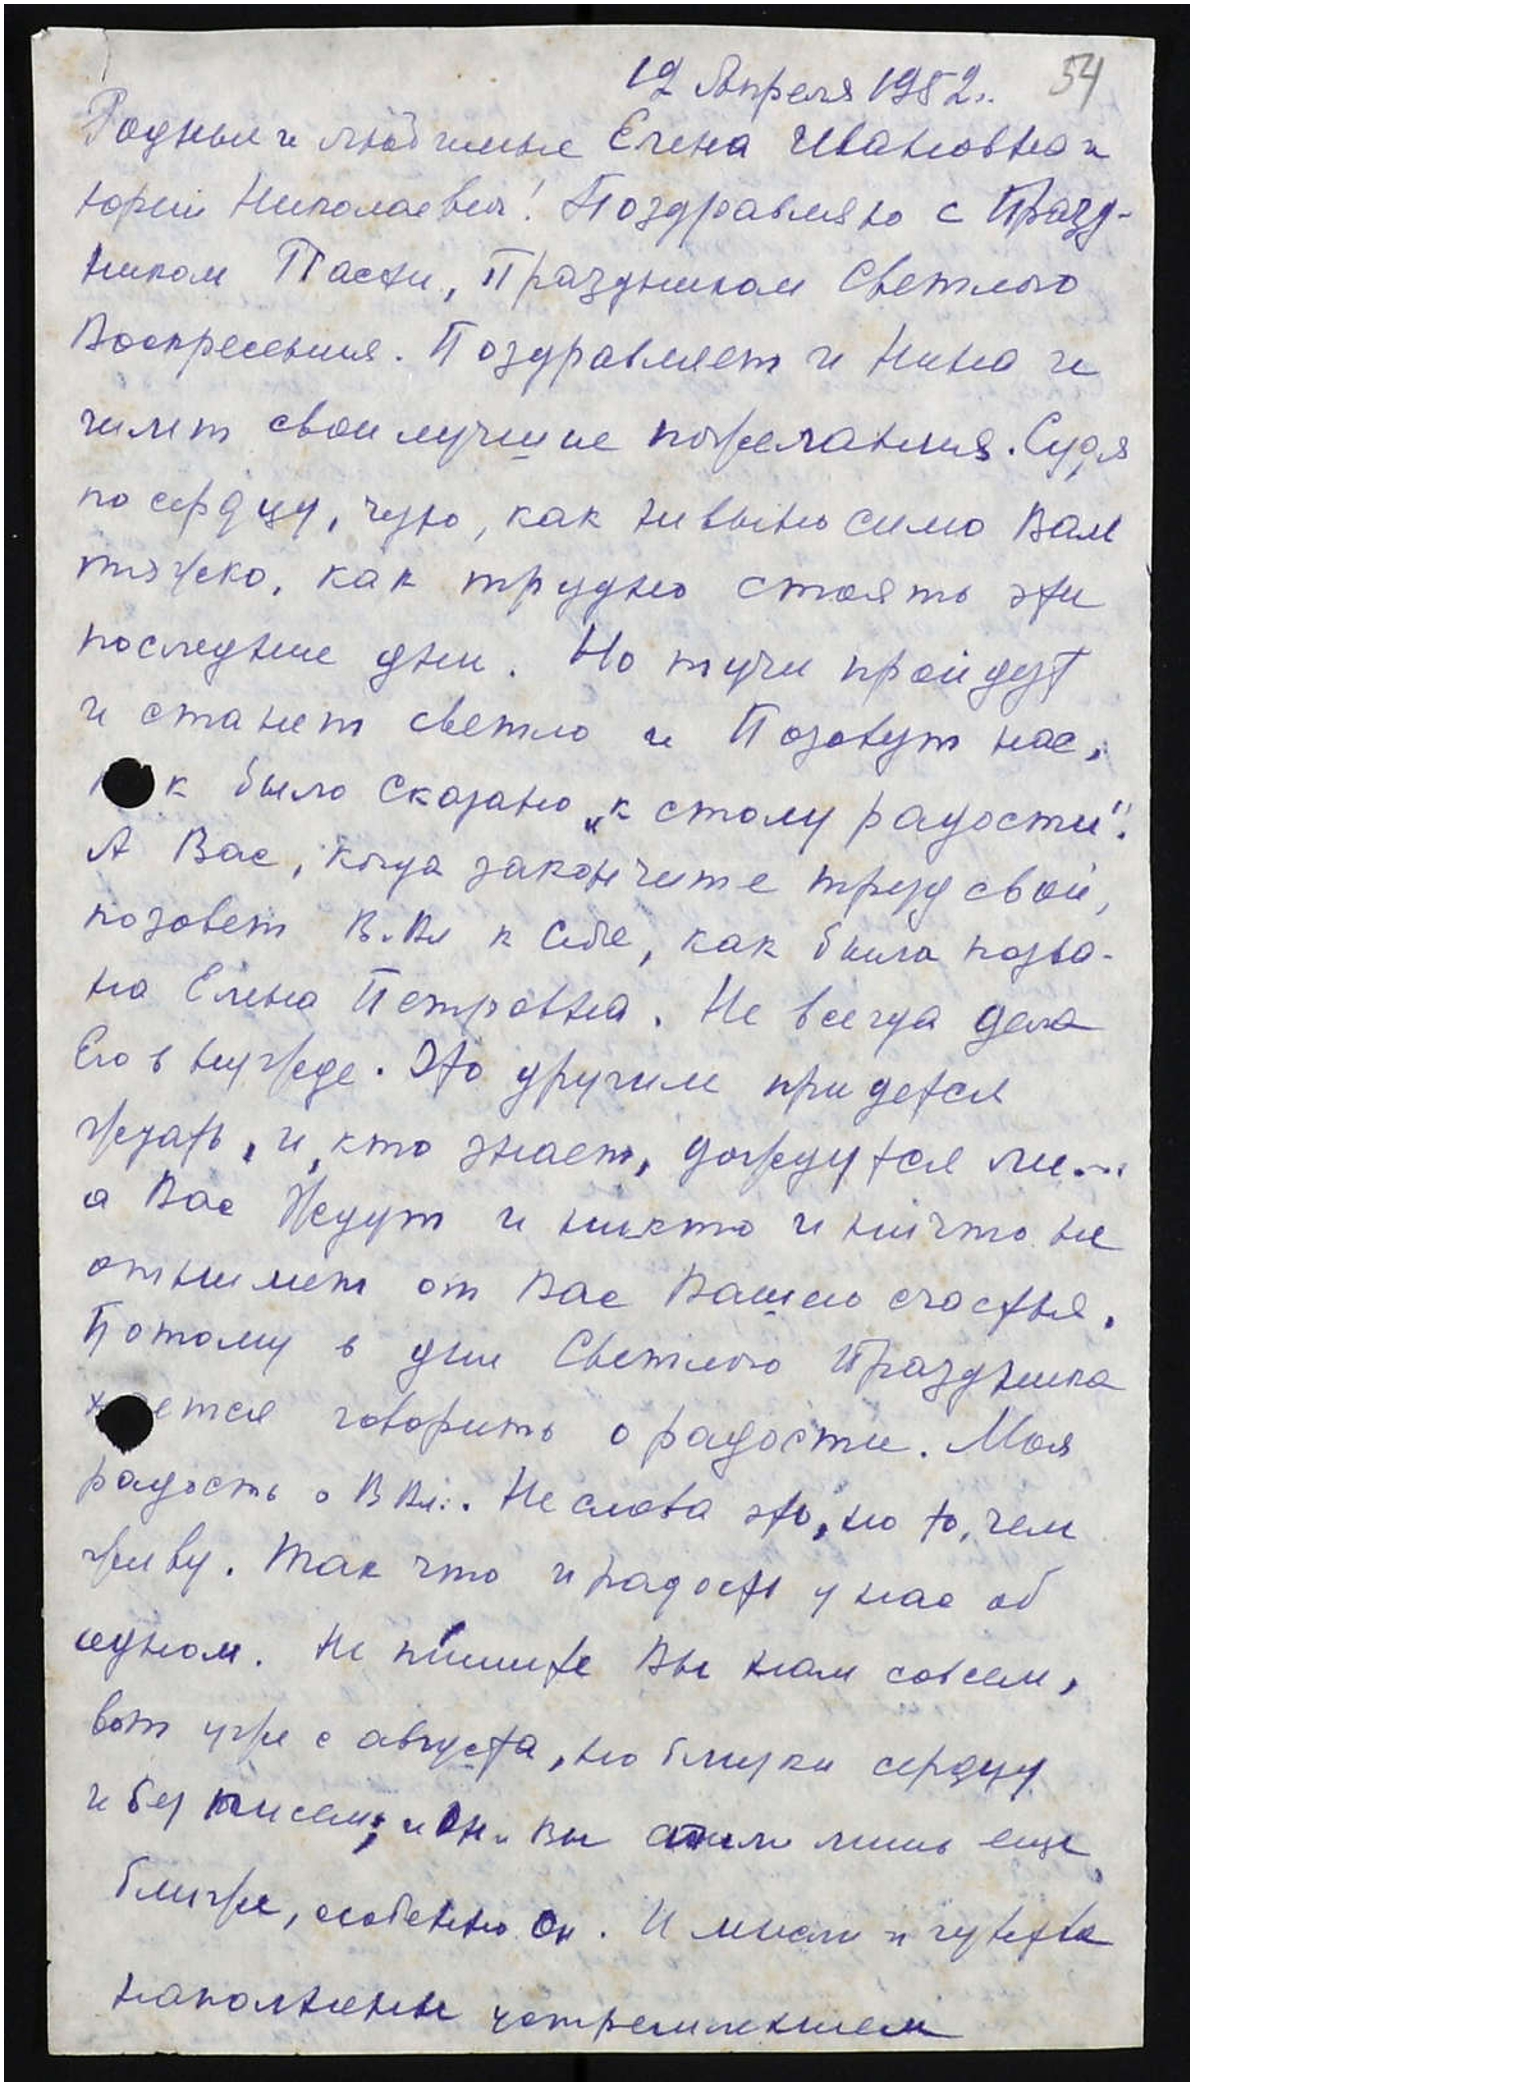 12 Апреля 1952г. 54
Родные и любимые Елена Ивановна и
Юрий Николаевич! Поздравляю с Празд-
ником Пасхи, Праздником Светлого
Воскресения. Поздравляет и Нина и
шлет свои лучшие пожелания. Судя
по сердцу, чую, как невыносимо Вам
тяжко, как трудно стоять эти
последние дни. Но тучи пройдут
и станет светло и Позовут нас,
как было сказано „к столу радости".
А Вас, когда закончите труд свой,
позовет В.Вл к Себе, как была позва-
на Елена Петровна. Не всегда дела
Его в нужде. Это другим придется
ждать, и, кто знает, дождутся ли...
а Вас Ждут и никто и ничто не
отнимет от Вас Вашего счастья.
Потому в дни Светлого Праздника
хочется говорить о радости. Моя
радость о В Вл.. Не слова это, но то, чем
живу. Так что и радость у нас об
одном. Не пишите Вы нам совсем,
вот уже с августа, но близки сердцу
и без писем; и Он и Вы стали лишь еще
ближе, особенно Он. И мысли и чувства
наполнены устремлением